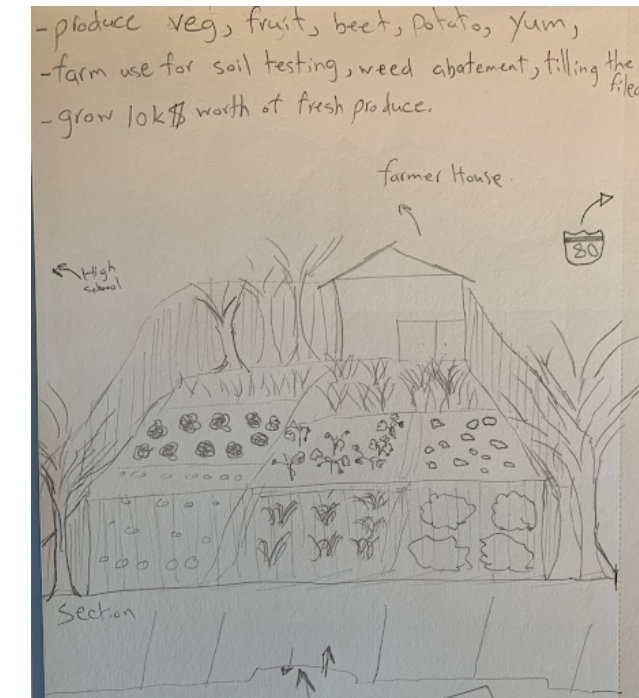 -produce veg, fruit, beet, potato, yum,
-farm use for soil testing, weed abatement, tilling the
filed
-grow 10k$ worth of fresh produce.
farmer House.
80
High
School
Section